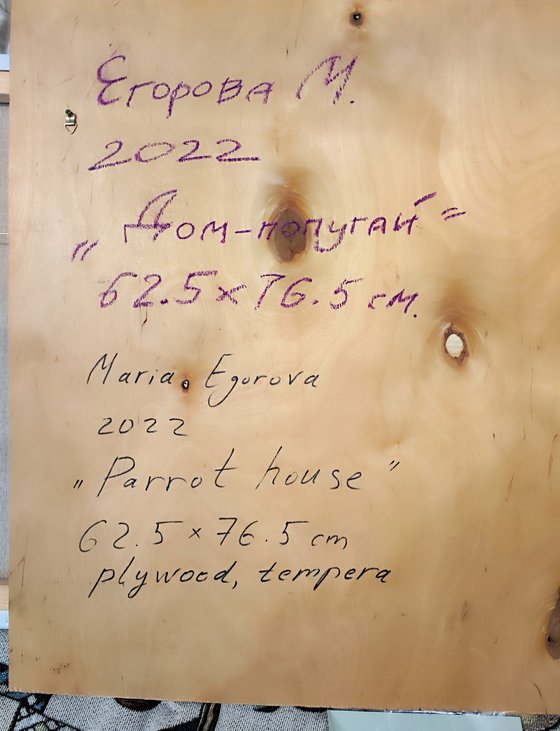 Егорова М.
2022
„Дом-попугай"
62.5×76.5 см.
Maria Egorova
2022
„Parrot house"
62.5×76.5 cm
plywood, tempera